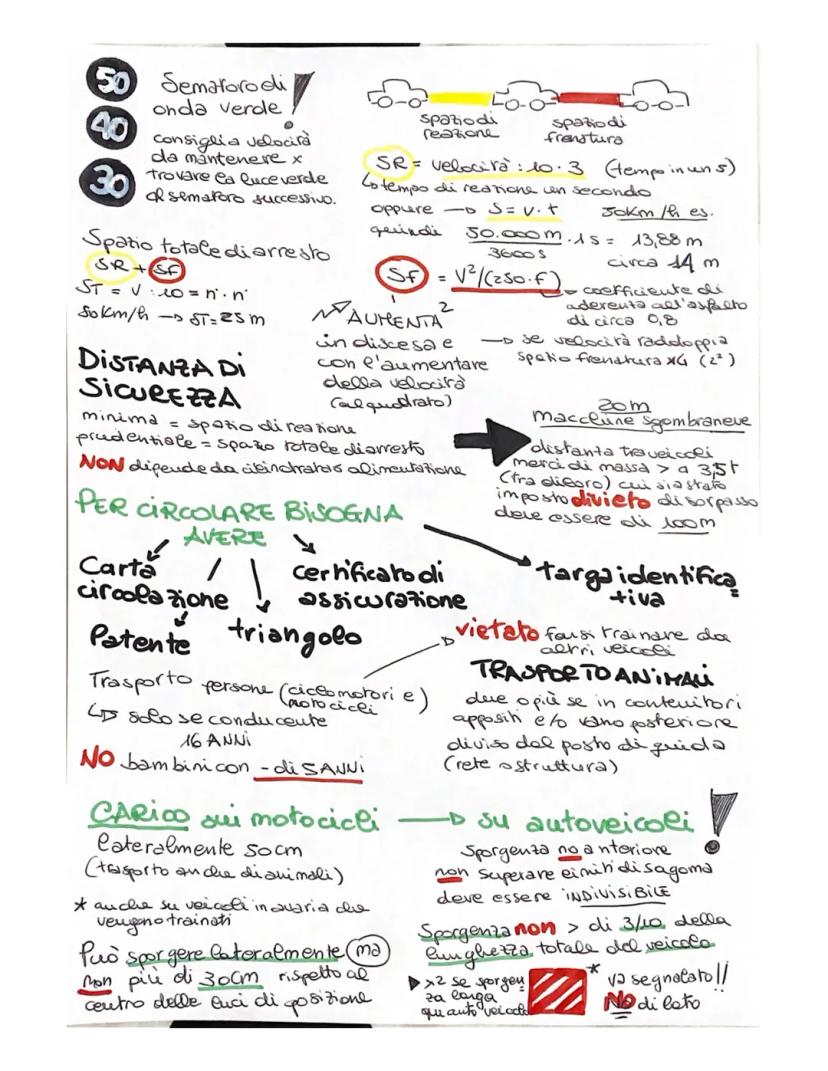 50
40
30
Semaforo di
onda verde!
consiglia velocità
da mantenere x
trovare la luce verde
al semaforo successivo.
spazio di
reazione
spazio di
frenatura
SR = velocità : 10 · 3 (tempo in un s)
↳ tempo di reazione un secondo
oppure → S = v · t 50 Km/h es.
quindi 50.000 m / 3600 s · 1 s = 13,88 m
circa 14 m
Spazio totale di arresto
SR + Sf
ST = V : 10 = n · n
50 Km/h → ST = 25 m
Sf = V²/(250·f)
→ coefficiente di
aderenza all'asfalto
di circa 0,8
AUMENTA²
in discesa e
con l'aumentare
della velocità
(al quadrato)
→ se velocità raddoppia
spazio frenatura x4 (2²)
DISTANZA DI
SICUREZZA
minima = spazio di reazione
prudenziale = spazio totale di arresto
NON dipende da cilindrata o alimentazione
20 m
macchine sgombraneve
distanza tra veicoli
merci di massa > a 3,5 t
(tra di loro) cui sia stato
imposto divieto di sorpasso
deve essere di 100 m
PER CIRCOLARE BISOGNA
AVERE
Carta
circolazione
Patente
triangolo
certificato di
assicurazione
targa identifica=
tiva
Trasporto persone (ciclomotori e)
motocicli
↳ solo se conducente
16 ANNI
NO bambini con - di 5 ANNI
vietato farsi trainare da
altri veicoli
TRASPORTO ANIMALI
due o più se in contenitori
appositi e/o vano posteriore
diviso dal posto di guida
(rete o struttura)
CARICO sui motocicli → su autoveicoli!
lateralmente 50 cm
(trasporto anche di animali)
* anche su veicoli in avaria che
vengono trainati
Può sporgere lateralmente ma
non più di 30 cm rispetto al
centro delle luci di posizione
Sporgenza no anteriore
non superare limiti di sagoma
deve essere INDIVISIBILE
Sporgenza non > di 3/10 della
lunghezza totale del veicolo
▶ x2 se sporgen
za larga
quanto veicolo
* va segnalato!!
No di lato